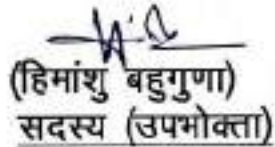 (हिमांशु बहुगुणा)
सदस्य (उपभोक्ता)